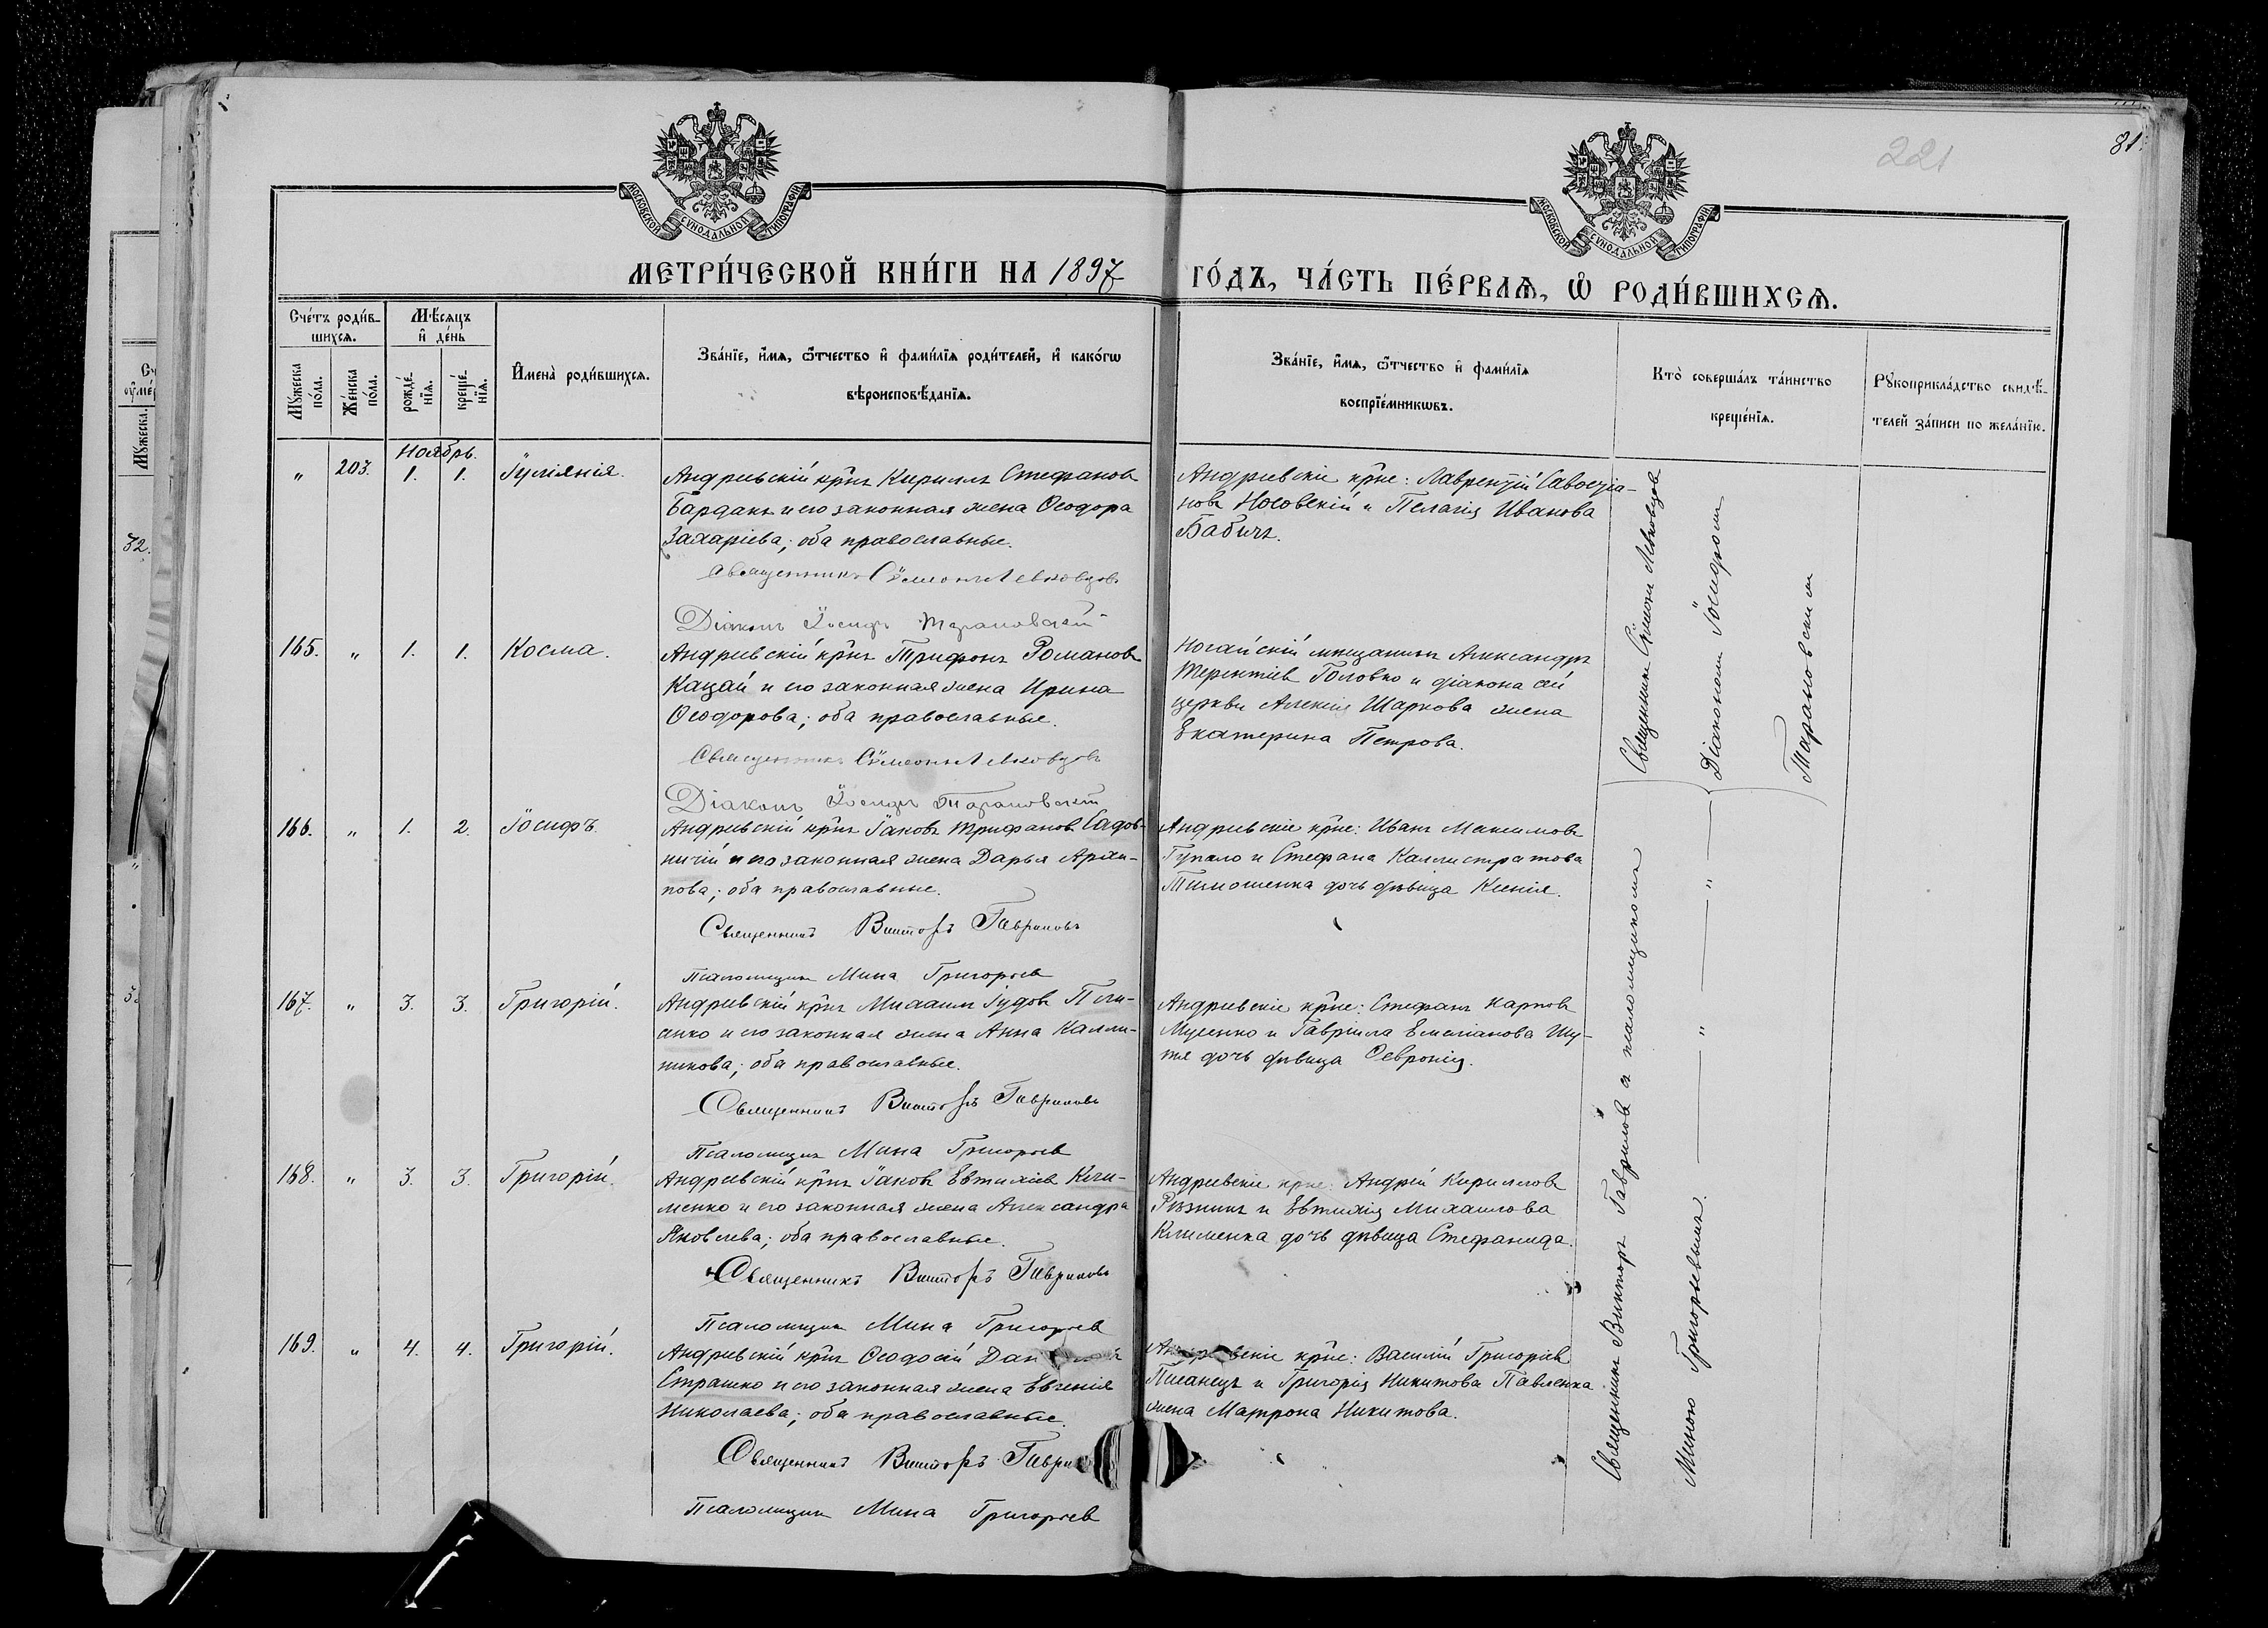 221
81.
МОСКОВСКОЙ СѴНОДАЛЬНОЙ ТИПОГРАФІИ
МОСКОВСКОЙ СѴНОДАЛЬНОЙ ТИПОГРАФІИ
МЕТРИ́ЧЕСКОЙ КНИ́ГИ НА 1897 ГО́ДЪ, ЧА́СТЬ ПЕ́РВАѦ, Ѡ҆ РОДИ́ВШИХСѦ.
Сче́тъ роди́в-
шихсѧ.
Мꙋ́жеска
пола.
Же́нска
по́ла.
Мѣ́сяцъ
и҆ де́нь
рожде́-
нїѧ.
креще́-
нїѧ.
И҆мена̀ роди́вшихсѧ.
Зва́нїе, и҆́мѧ, ѻ҆́тчество и҆ фами́лїѧ роди́телей, и҆ како́гѡ
вѣроисповѣ́данїѧ.
Зва́нїе, и҆́мѧ, ѻ҆́тчество и҆ фами́лїѧ
воспрїе́мникѡвъ.
Кто̀ соверша́лъ та́инство
креще́нїѧ.
Рꙋкоприкла́дство свидѣ́-
телей за́писи по жела́нїю.
Ноябрь.
„ 203. 1. 1. Іуліянія.
Андреевскій кр̃нъ Кириллъ Стефановъ
Бардакъ и его законная жена Ѳеодора
Захаріева; оба православные.
Священникъ Сѵмеонъ Левковцовъ
Діаконъ Іосифъ Тарановскій
Андреевскіе кр̃не: Лаврентій Савостіа-
новъ Носовскій и Пелагія Иванова
Бабичъ.
Священникъ Сѵмеонъ Левковцовъ
Діакономъ Іосифомъ
Тарановскимъ
165. „ 1. 1. Косма.
Андреевскій кр̃нъ Трифонъ Романовъ
Кацай и его законная жена Ирина
Ѳеодорова; оба православные.
Священникъ Сѵмеонъ Левковцовъ
Діаконъ Іосифъ Тарановскій
Ногайскій мѣщанинъ Александръ
Терентіевъ Головко и діакона сей
церкви Алексія Шаркова жена
Екатерина Петрова.
166. „ 1. 2. Іосифъ.
Андреевскій кр̃нъ Іаковъ Трифоновъ Садов-
ничій и его законная жена Дарья Архи-
пова; оба православные.
Священникъ Викторъ Гавриловъ
Псаломщикъ Мина Григорьев
Андреевскіе кр̃не: Иванъ Максимовъ
Гупало и Стефана Каллистратова
Тимошенка дочь дѣвица Ксенія.
167. „ 3. 3. Григорій.
Андреевскій кр̃нъ Михаилъ Іудовъ
и его законная жена Анна Калли-
никова; оба православные.
Священникъ Викторъ Гавриловъ
Псаломщикъ Мина Григорьев
Андреевскіе кр̃не: Стефанъ Карповъ
Мусенко и Гавріила Емеліанова Шу-
тя дочь дѣвица Ѳевронія.
168. „ 3. 3. Григорій.
Андреевскій кр̃нъ Іаковъ Евтихіевъ Кли-
менко и его законная жена Александра
Яковлева; оба православные.
Священникъ Викторъ Гавриловъ
Псаломщикъ Мина Григорьев
Андреевскіе кр̃не: Андрей Кирилловъ
Рѣзникъ и Евтихія Михаилова
Клименка дочь дѣвица Стефанида.
169. „ 4. 4. Григорій.
Андреевскій кр̃нъ Ѳеодосій
Страшко и его законная жена Евгенія
Николаева; оба православные.
Священникъ Викторъ
Псаломщикъ Мина Григорьев
кр̃не: Василій Григоріевъ
Писанецъ и Григорія Никитова Павленка
жена Матрона Никитова.
Священникъ Викторъ Гавриловъ съ псаломщикомъ
Миною Григорьевымъ.
32.